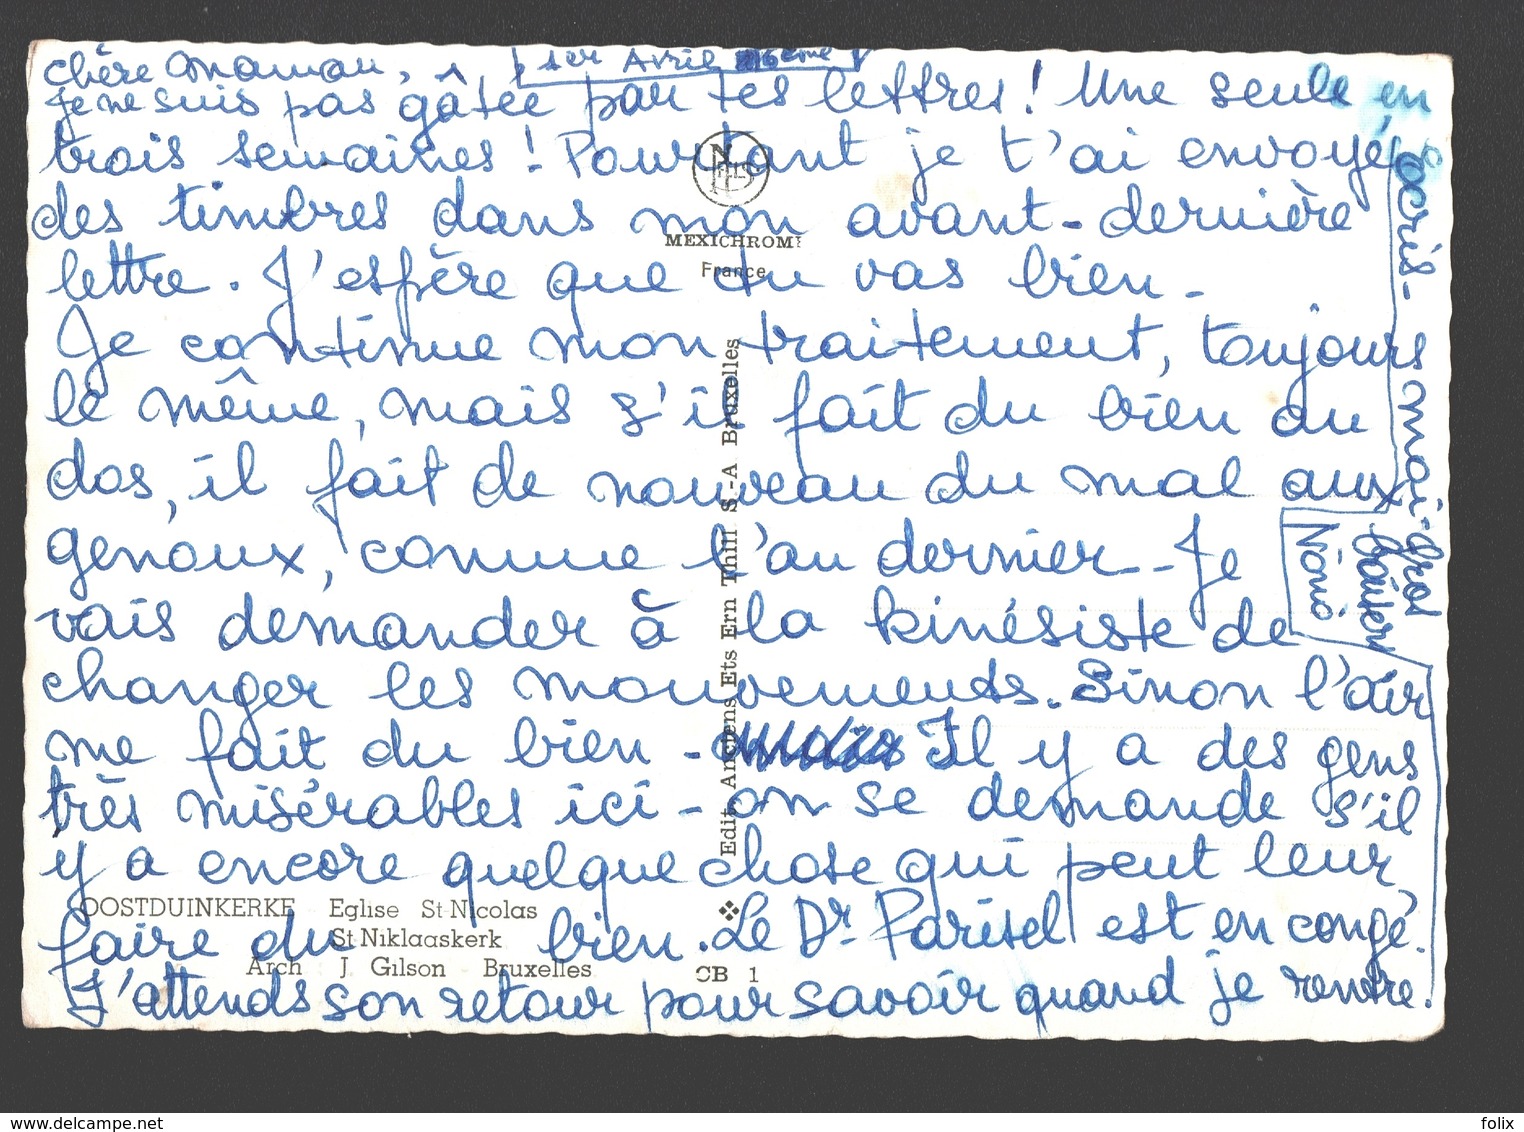 1er Avril 26ème
Chère Maman,
Je ne suis pas gâtée par tes lettres! Une seule en
trois semaines! Pourtant je t'ai envoyé
des timbres dans mon avant-dernière
lettre. J'espère que tu vas bien -
Je continue mon traitement, toujours
le même, mais s'il fait du bien au
dos, il fait de nouveau du mal aux
genoux, comme l'an dernier - Je
vais demander à la kinésiste de
changer les mouvements. Sinon l'air
me fait du bien - Il y a des gens
très misérables ici - on se demande s'il
y a encore quelque chose qui peut leur
faire du bien. Le Dr Parisel est en congé.
J'attends son retour pour savoir quand je rentre.
écris-moi - Gros
baisers
Nono
MEXICHROME
France
Edit. Anciens Ets Ern Thill S.-A Bruxelles
OOSTDUINKERKE Eglise St-Nicolas
St Niklaaskerk
Arch J. Gilson Bruxelles
CB 1
folix
delcampe.net